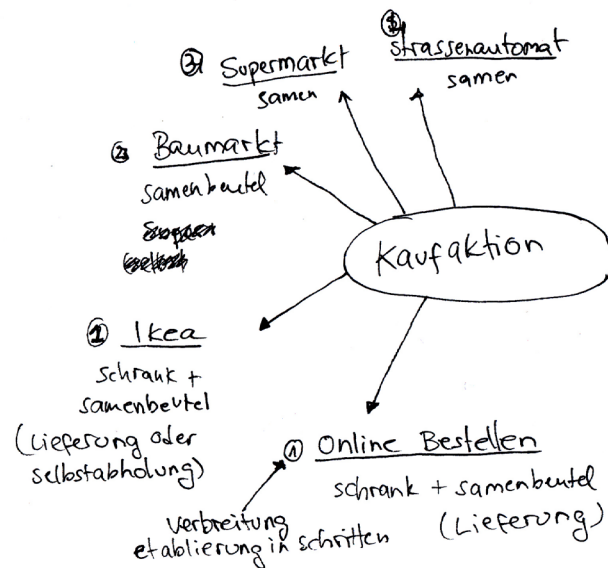 ③ Supermarkt
samen
strassenautomat
samen
② Baumarkt
samenbeutel
Kaufaktion
① Ikea
schrank +
samenbeutel
(Lieferung oder
selbstabholung)
① Online Bestellen
schrank + samenbeutel
(Lieferung)
verbreitung
etablierung in schritten